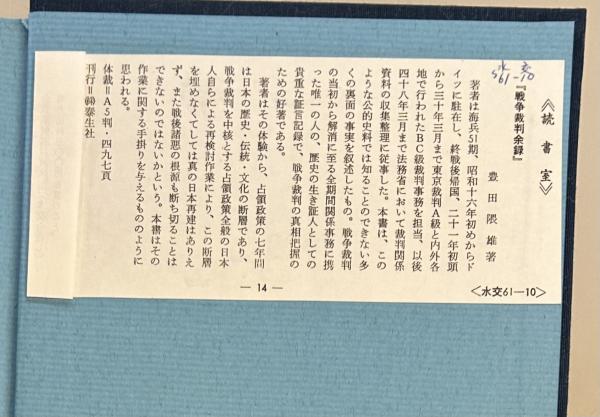 水交
S61-10
≪読書室≫
『戦争裁判余録』
豊田隈雄著
著者は海兵51期、昭和十六年初めからド
イツに駐在し、終戦後帰国、二十一年初頭
から三十年三月まで東京裁判A級と内外各
地で行われたBC級裁判事務を担当、以後
四十八年三月まで法務省において裁判関係
資料の収集整理に従事した。本書は、この
ような公的史料では知ることのできない多
くの裏面の事実を叙述したもの。戦争裁判
の当初から解消に至る全期間関係事務に携
った唯一の人の、歴史の生き証人としての
貴重な証言記録で、戦争裁判の真相把握の
ための好著である。
著者はその体験から、占領政策の七年間
は日本の歴史・伝統・文化の断層であり、
戦争裁判を中核とする占領政策全般の日本
人自らによる再検討作業により、この断層
を埋めなくてしては真の日本再建はありえ
ず、また戦後諸悪の根源も断ち切ることは
できないのではないかという。本書はその
作業に関する手掛りを与えるもののように
思われる。
体裁=A5判・四九七頁
刊行=㈱泰生社
― 14 ―
<水交61―10>